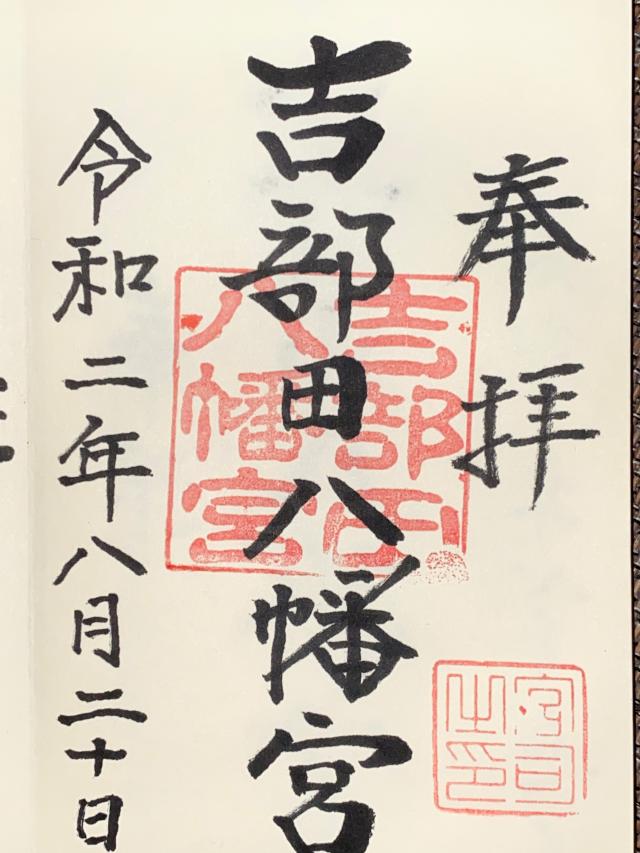 奉拝
吉部田八幡宮
令和二年八月二十日
吉部田
八幡宮
宮司
之印